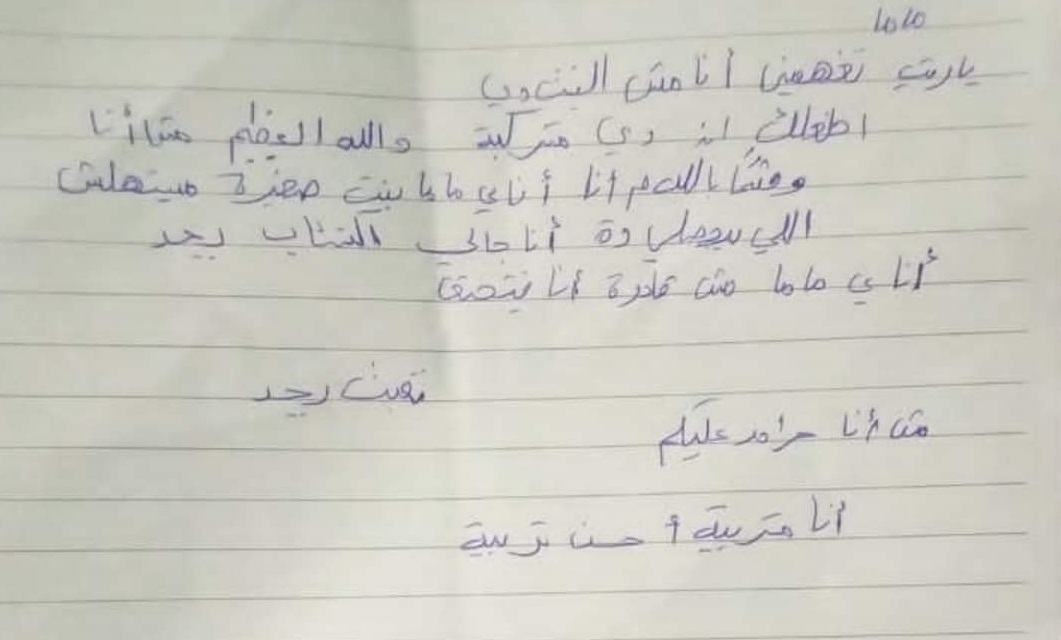 ماما
ياريت تفهميني أنا مش البنت دي
اطلاقا ان دي متركبة والله العظيم مش أنا
وقسما بالله م انا أنا يا ماما بنت صغيرة مستهلش
اللي بيحصلي دة أنا جالي اكتئاب بجد
أنا يا ماما مش قادرة أنا بتخنق
تعبت بجد
مش أنا حرام عليكم
أنا متربية أحسن تربية